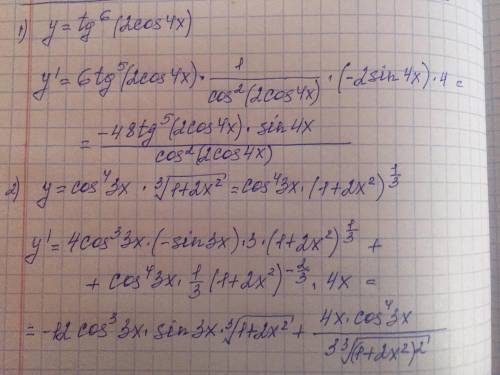 1) y = tg⁶(2cos4x)
y' = 6tg⁵(2cos4x) · 1/cos²(2cos4x) · (-2sin4x) · 4 =
= -48tg⁵(2cos4x) · sin4x / cos²(2cos4x)
2) y = cos⁴3x · ∛(1+2x²) = cos⁴3x · (1+2x²)^(1/3)
y' = 4cos³3x · (-sin3x) · 3 · (1+2x²)^(1/3) +
+ cos⁴3x · 1/3 (1+2x²)^(-2/3) · 4x =
= -12cos³3x · sin3x · ∛(1+2x²) + 4x · cos⁴3x / 3∛((1+2x²)²)